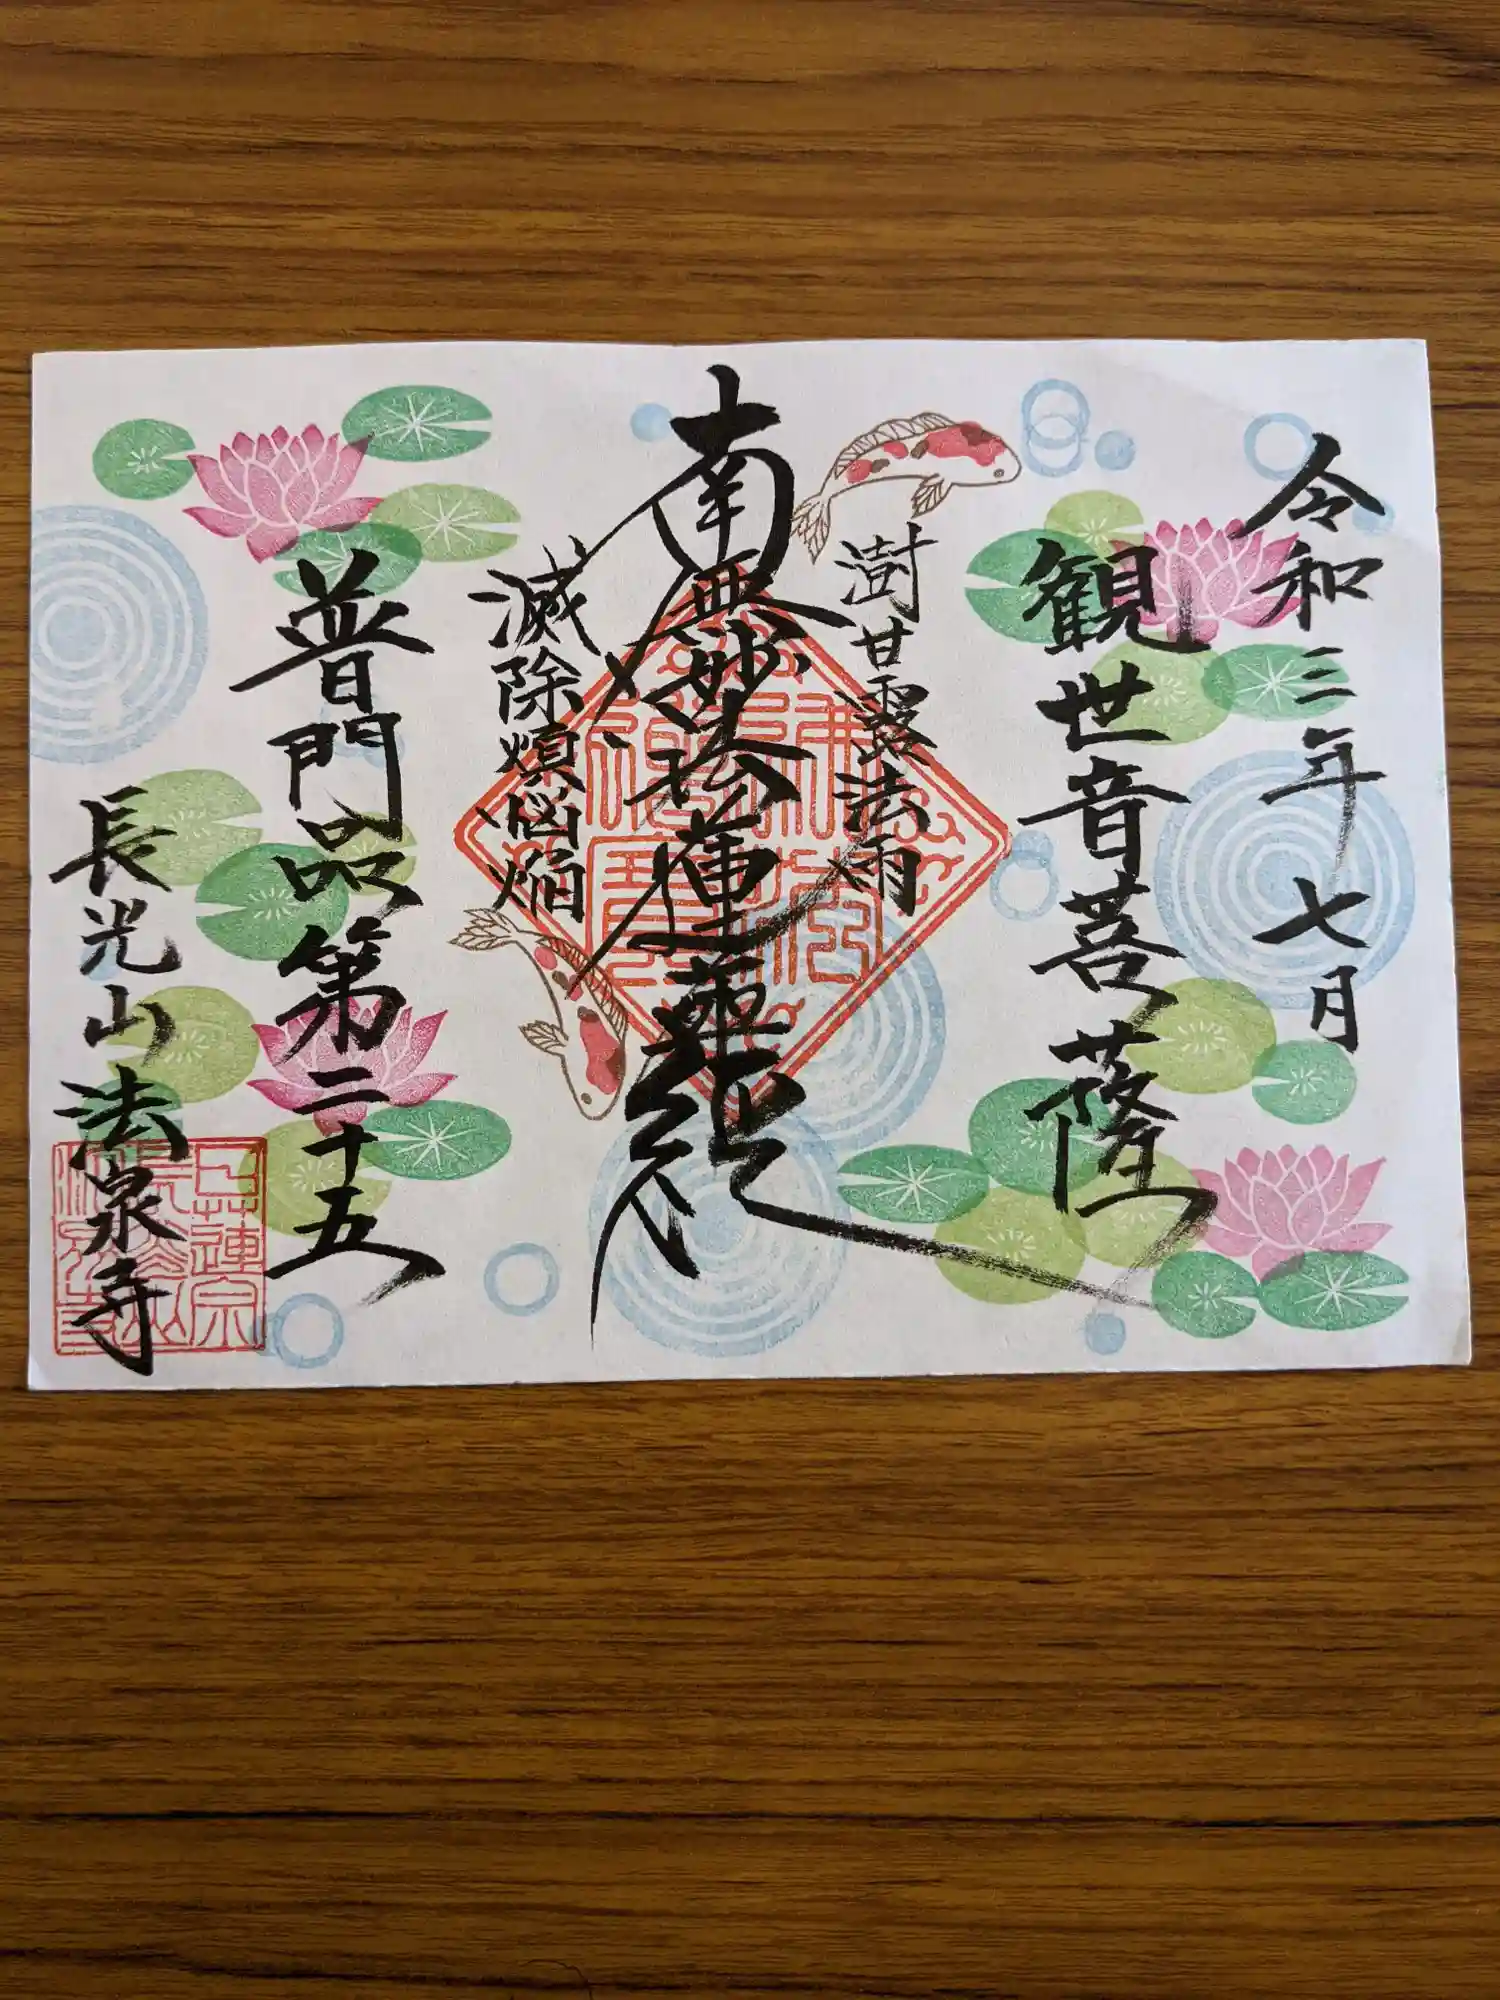 令和三年七月
観世音菩薩
澍甘露法雨
南無妙法蓮華経
滅除煩悩焔
普門品第二十五
長光山法泉寺
日蓮宗